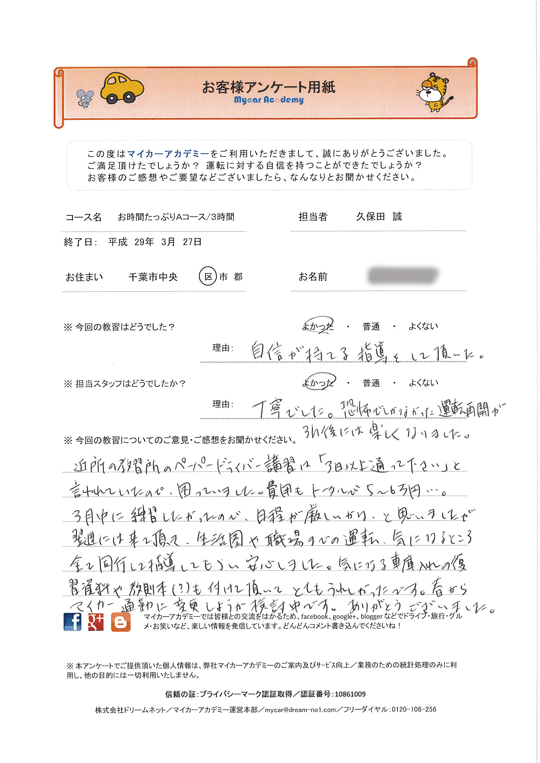 お客様アンケート用紙
Mycar Academy
この度はマイカーアカデミーをご利用いただきまして、誠にありがとうございました。
ご満足頂けたでしょうか？ 運転に対する自信を持つことができたでしょうか？
お客様のご感想やご要望などございましたら、なんなりとお聞かせください。
コース名 お時間たっぷりAコース/3時間 担当者 久保田 誠
終了日： 平成 29年 3月 27日
お住まい 千葉市中央 区 市 郡 お名前
※ 今回の教習はどうでした？ よかった ・ 普通 ・ よくない
理由： 自信が持てる指導をして頂いた。
※ 担当スタッフはどうでしたか？ よかった ・ 普通 ・ よくない
理由： 丁寧でした。恐怖でしかなかった運転再開が
3h後には楽しくなりました。
※ 今回の教習についてのご意見・ご感想をお聞かせください。
近所の教習所のペーパードライバー講習は「3日以上通って下さい」と
言われていたので、困っていました。費用もトータルで5〜6万円…。
3月中に練習したかったので、日程が厳しいかり、と思いましたが
翌週には来て頂き、生活圏や職場までの運転、気になるところ
全て同行して指導してもらい安心しました。気になる車庫入れの復
習資料や教則本(?)も付けて頂いてとてもうれしかったです。春から
マイカー通勤に変更しようか検討中です。ありがとうございました。
マイカーアカデミーでは皆様との交流をはかるため、facebook、google+、bloggerなどでドライブ・旅行・グル
メ・お笑いなど、楽しい情報を発信しています。どんどんコメント書き込んでくださいね！
※ 本アンケートでご提供頂いた個人情報は、弊社マイカーアカデミーのご案内及びサービス向上／業務のための統計処理のみに利
用し、他の目的には一切利用いたしません。
信頼の証：プライバシーマーク認証取得／認証番号：10861009
株式会社ドリームネット／マイカーアカデミー運営本部／mycar@dream-no1.com／フリーダイヤル：0120-106-256